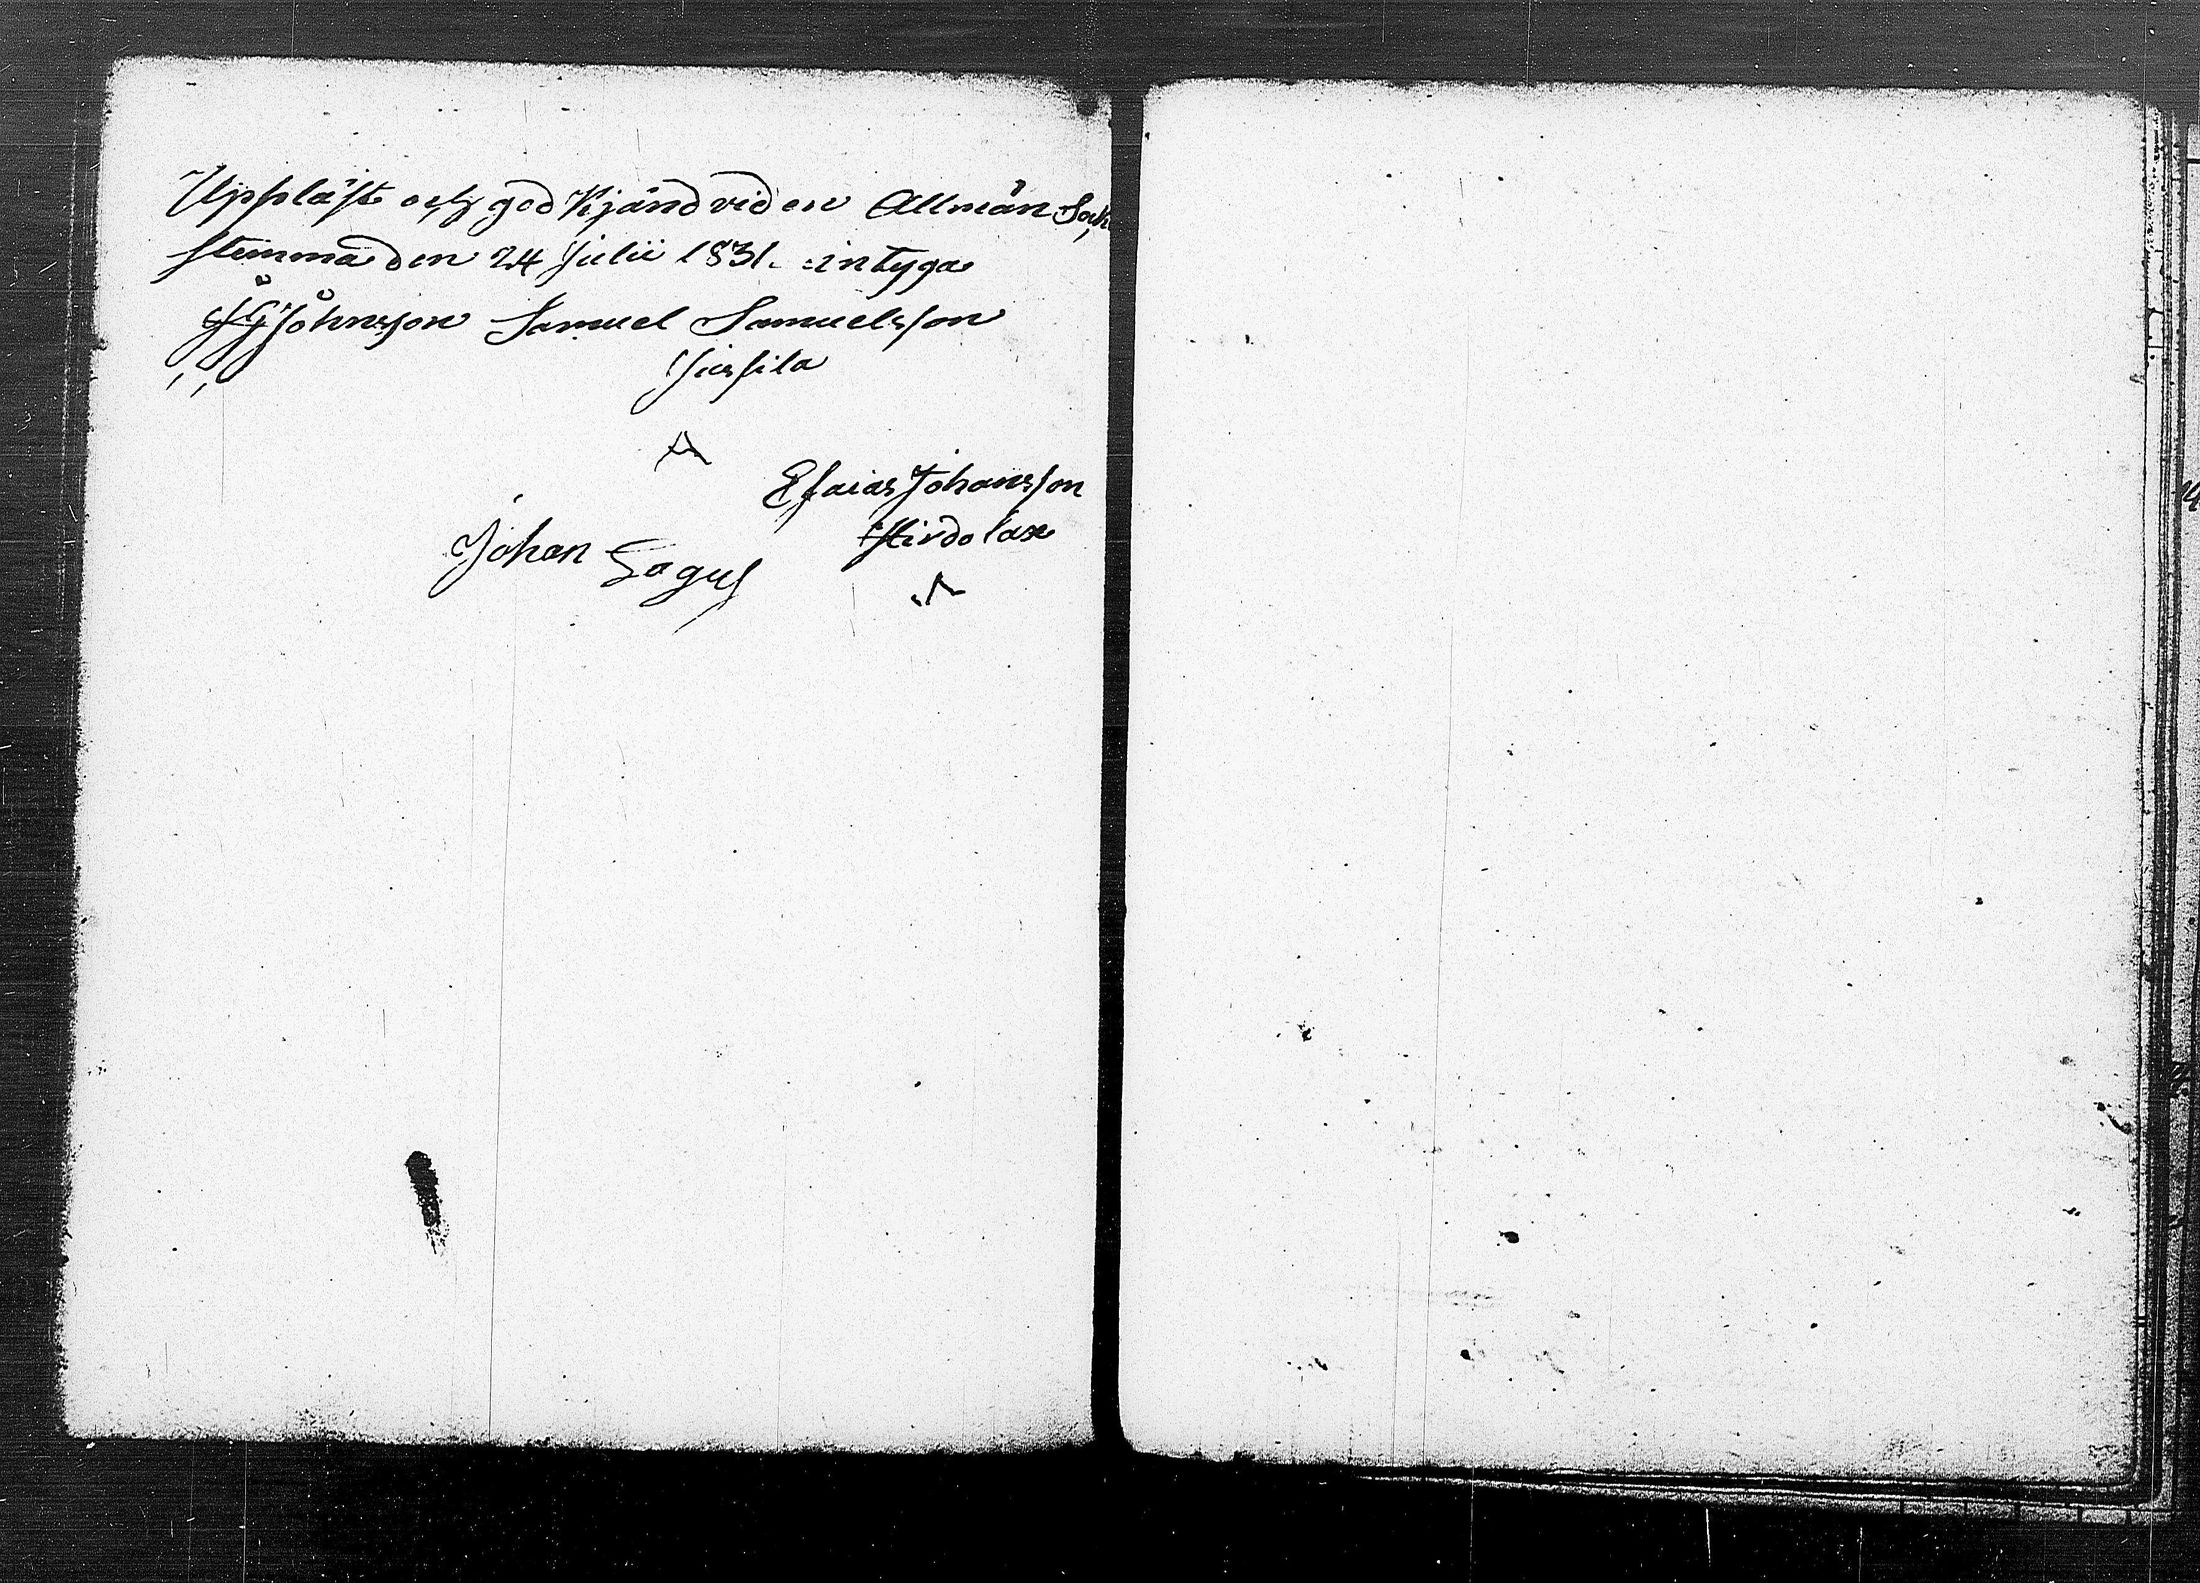 Uppläst och godkjänd vid en Allmän Sock
stemma den 24 Julii 1831. intyga
Johnsson Samuel Samuelsson
Jussila
Esaias Johansson
Hirdolax
Johan Sagus